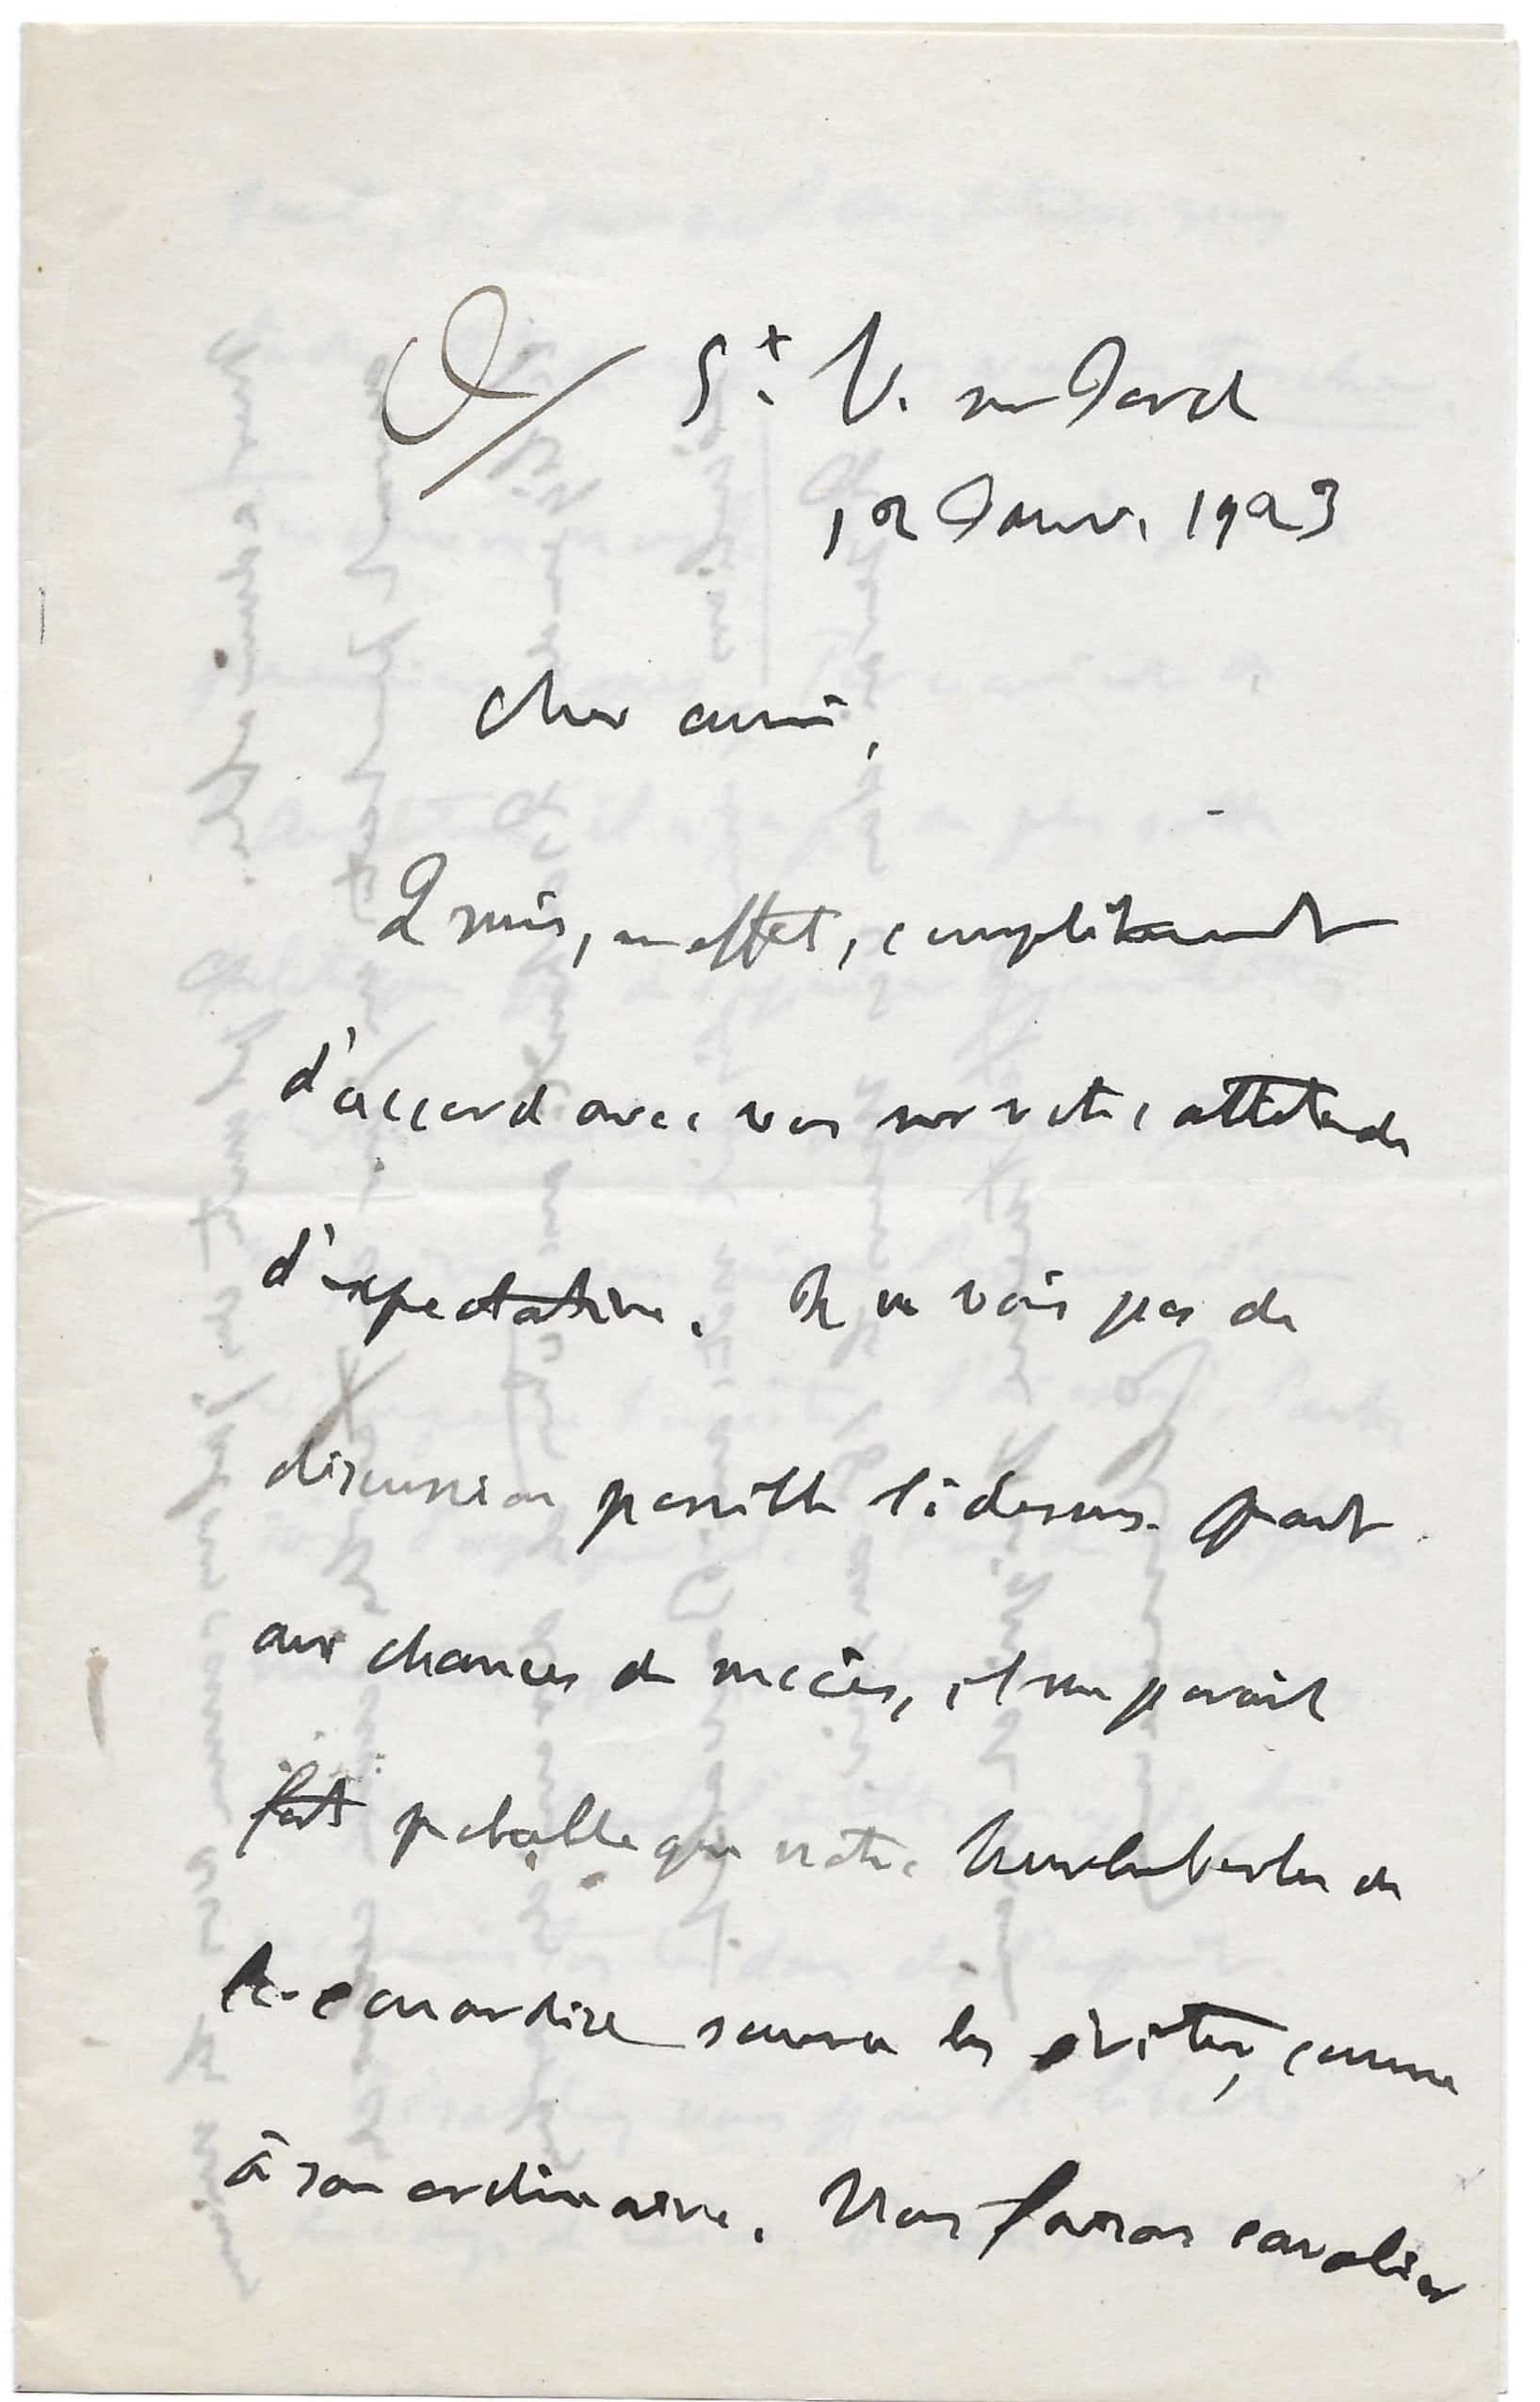 St. V. sur Jard
12 Janv. 1923
Cher ami,
Je suis, en effet, complètement
d'accord avec vous sur votre attitude
d'expectative. Je ne vois pas de
discussion possible là dessus. Quant
aux chances de succès, il me parait
fort probable que notre de
la couardise saura les éviter, comme
à son ordinaire. Nous faisons cavalier